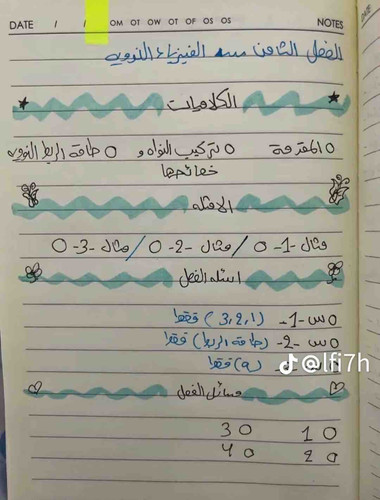 DATE / / OM OT OW OT OF OS OS NOTES
الفصل الثامن الفيزياء النووية
الكلاميات
المقدمة O تركيب النواة و O طاقة الربط النووية O
خصائصها
الامثله
مثال -1- O / مثال -2- O / مثال -3- O
اسئله الفصل
O س -1- (3,2,1) فقط
O س -2- (طاقة الربط) فقط
(a) فقط
@lfi7h
مسائل الفصل
1 O 3 O
2 O 4 O